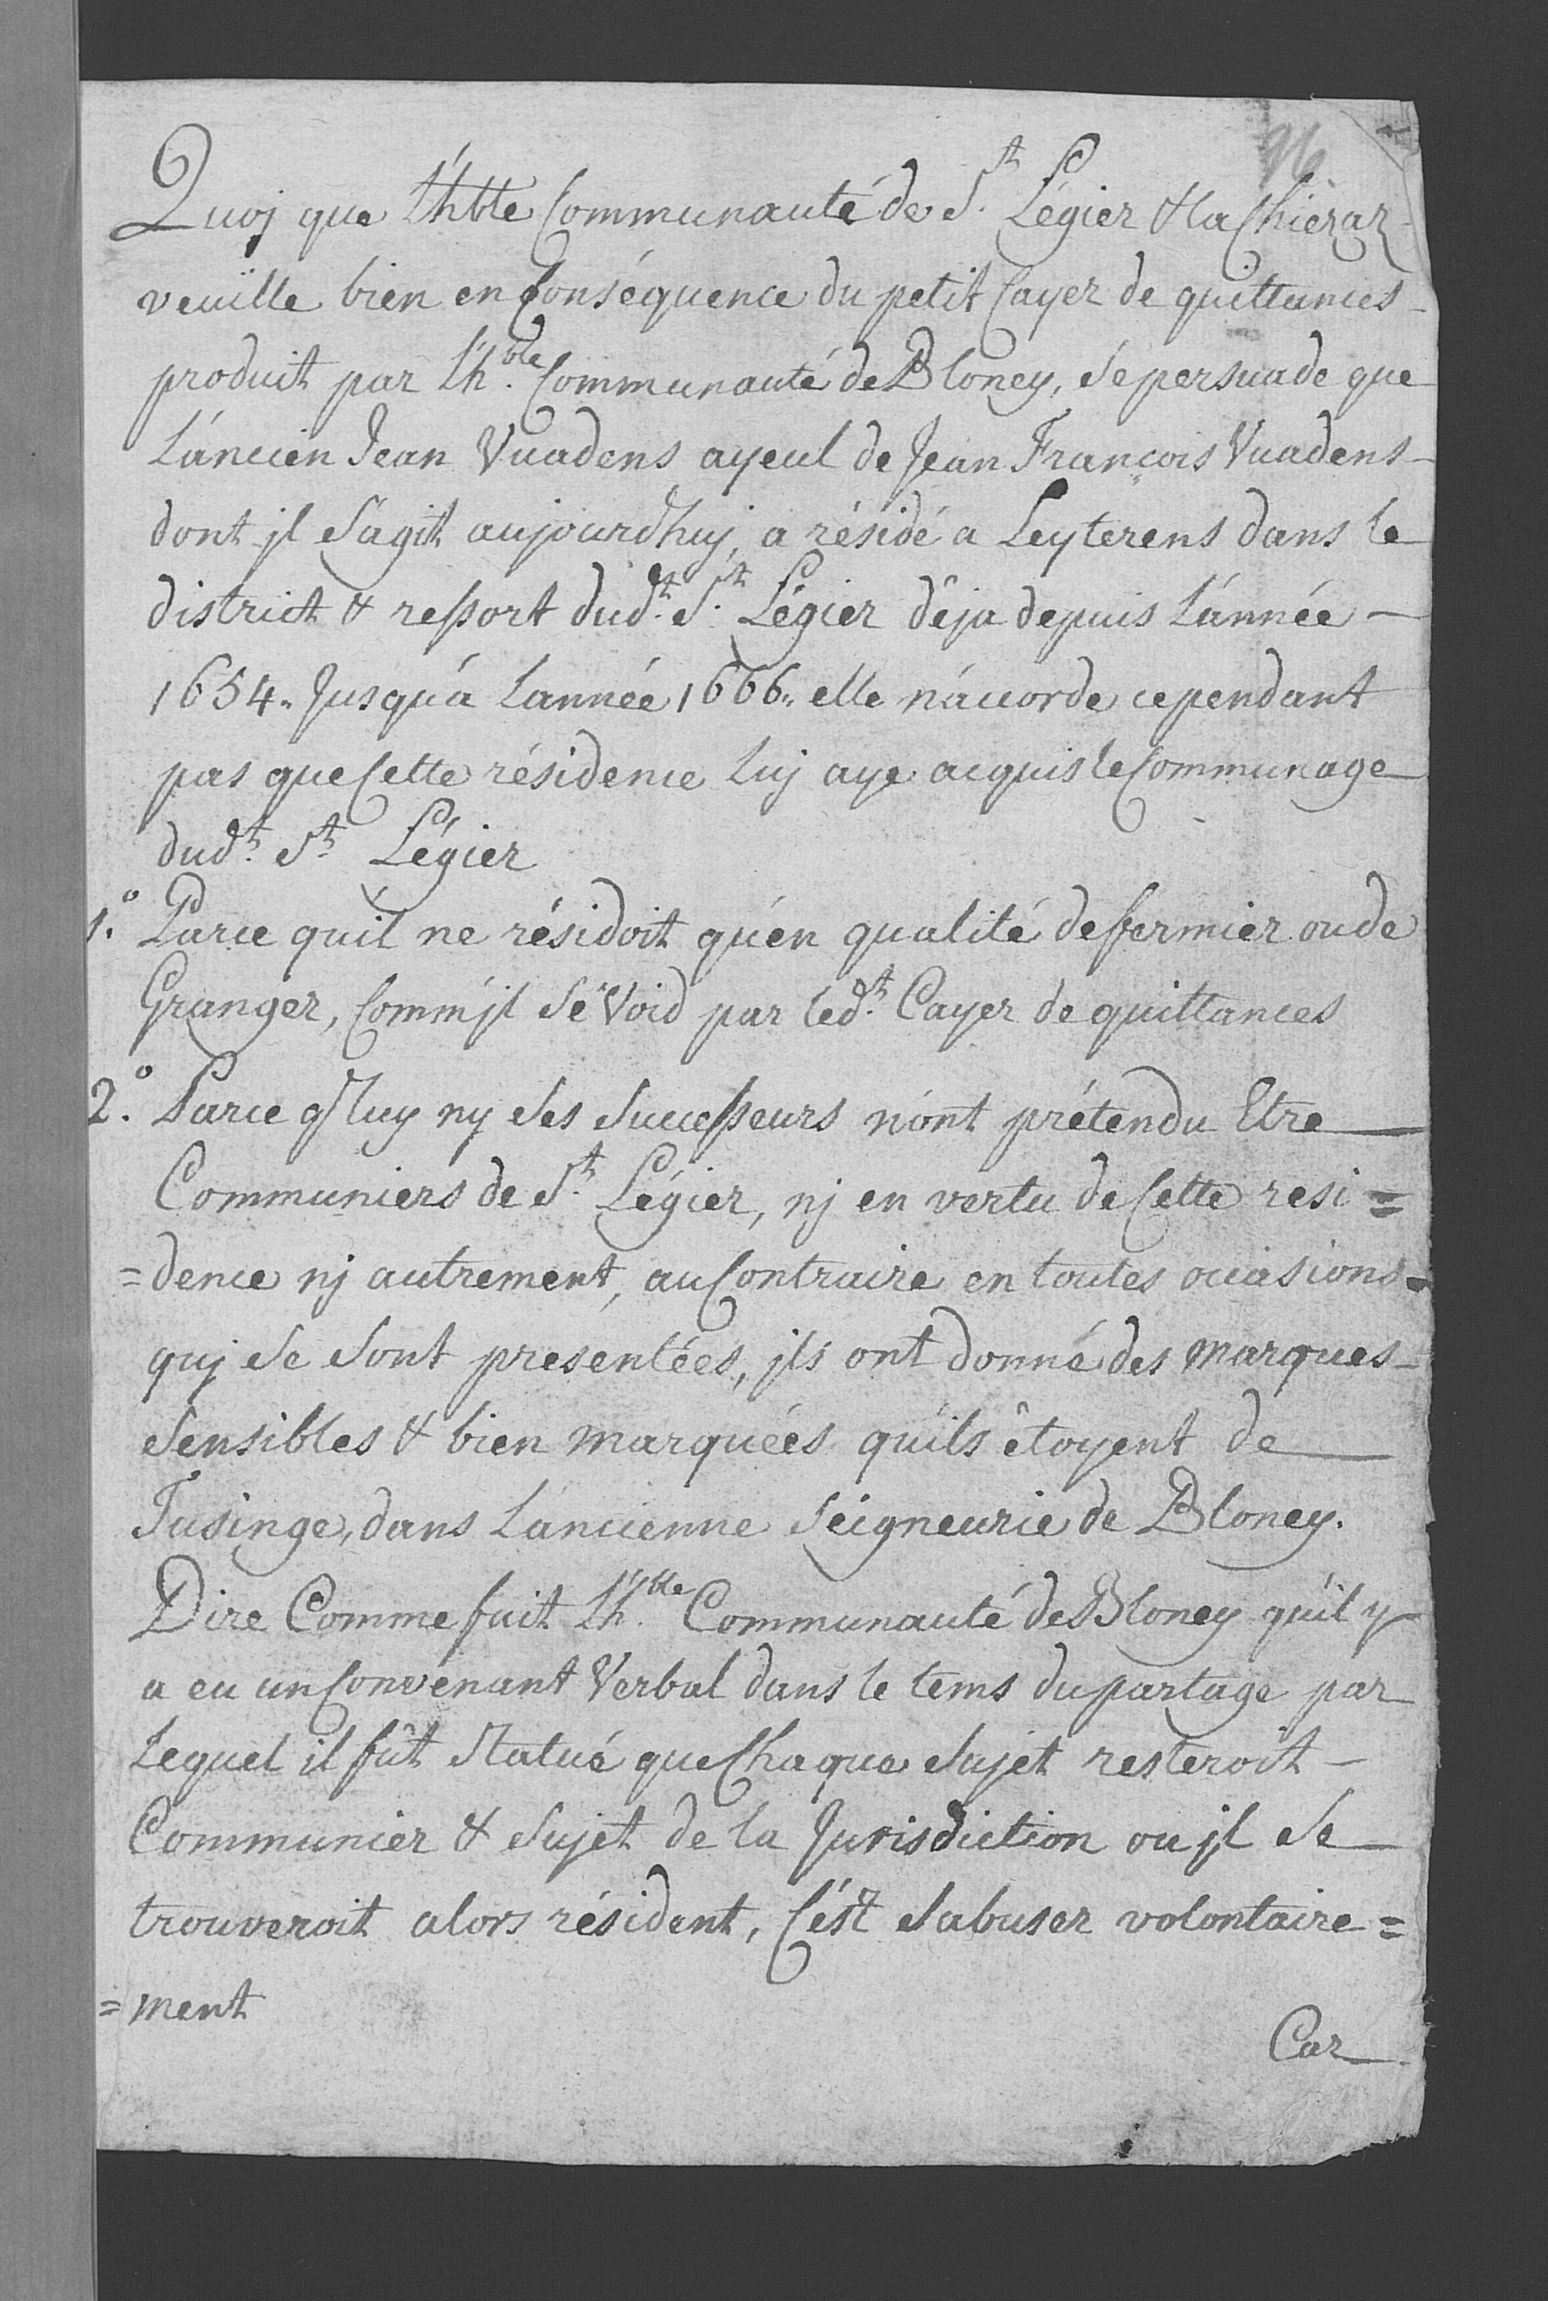 96
Quoj que L'hble Communauté de St. Légier & la Chieraz
veuïlle bien en Conséquence du petit Cayer de quittances
produit par L'h.ble Communauté de Bloney, se persuade que
L'ancien Jean Vuadens ayeul de Jean François Vuadens
dont jl s'agit aujourdhuj, a résidé a Leyterens dans le
district & ressort dud.t St. Légier déja depuis L'année
1654. Jusqu'à Lannée 1666. elle n'accorde cependant
pas que Cette résidence Luj aye acquis le Communage
dud.t St. Légier
1.o Parce qu'il ne résidoit qu'en qualité de fermier ou de
Granger, Comm'jl se Void par led.t Cayer de quittances
2.o Parce q luy ny ses Successeurs n'ont prétendu Etre
Communiers de St. Légier, nj en vertu de Cette resi=
=dence nj autrement, au Contraire en toutes ocasions
quj se sont presentées, jls ont donné des marques
sensibles & bien marquées qu'ils êtoyent de
Tusinge, dans L'ancienne Seigneurie de Bloney.
Dire Comme fait L'h.ble Communauté de Bloney qu'il y
a eu un Convenant Verbal dans le tems du partage par
Lequel il fût Statué que Chaque Sujet resteroit
Communier & Sujet de la Jurisdiction ou jl se
trouveroit alors résident, C'est s'abuser volontaire=
=ment
Car